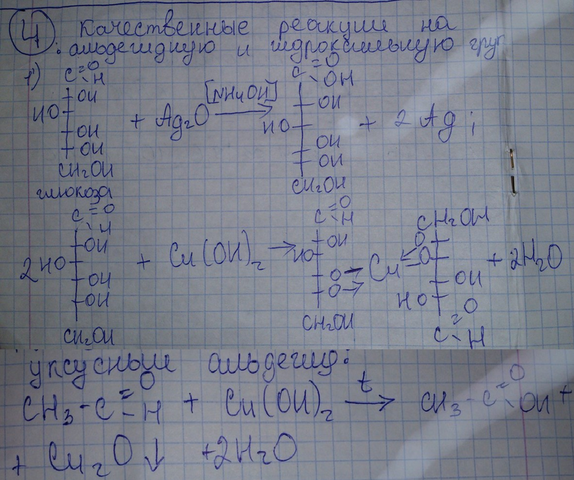 4. Качественные реакции на
альдегидную и гидроксильную груп
1) C=O H
OH
HO
OH
OH
CH2OH
глюкоза
+ Ag2O [NH4OH] →
C=O OH
OH
HO
OH
OH
CH2OH
+ 2Ag↓
C=O H
OH
2 HO
OH
OH
CH2OH
+ Cu(OH)2 →
C=O H
OH
HO
O
O
CH2OH
Cu
CH2OH
O
O
OH
HO
C=O H
+ 2H2O
уксусный альдегид:
CH3-C=O H + Cu(OH)2 t → CH3-C=O OH +
+ Cu2O↓ +2H2O